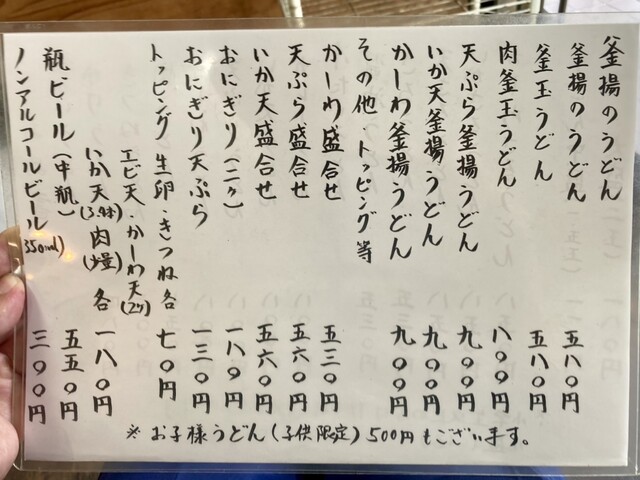 釜揚のうどん
釜揚のうどん 五八〇円
釜玉うどん 五八〇円
肉釜玉うどん 八〇〇円
天ぷら釜揚うどん 九〇〇円
いか天釜揚うどん 九〇〇円
かしわ釜揚うどん 九〇〇円
その他・トッピング等
かしわ盛合せ 五三〇円
天ぷら盛合せ 五六〇円
いか天盛合せ 五六〇円
おにぎり(二ヶ) 一八〇円
おにぎり天ぷら 一三〇円
トッピング 生卵・きつね各 七〇円
エビ天・かしわ天(2ケ)
いか天(3休) 肉(少量) 各 一八〇円
瓶ビール(中瓶) 五五〇円
ノンアルコールビール(350ml) 三〇〇円
※お子様うどん(子供限定)500円もございます。